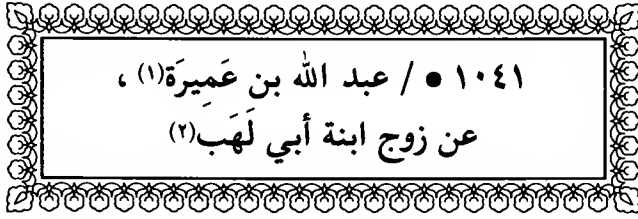 ١٠٤١ ● / عبد الله بن عَمِيرَة(١) ،
عن زوج ابنة أبي لَهَب(٢)